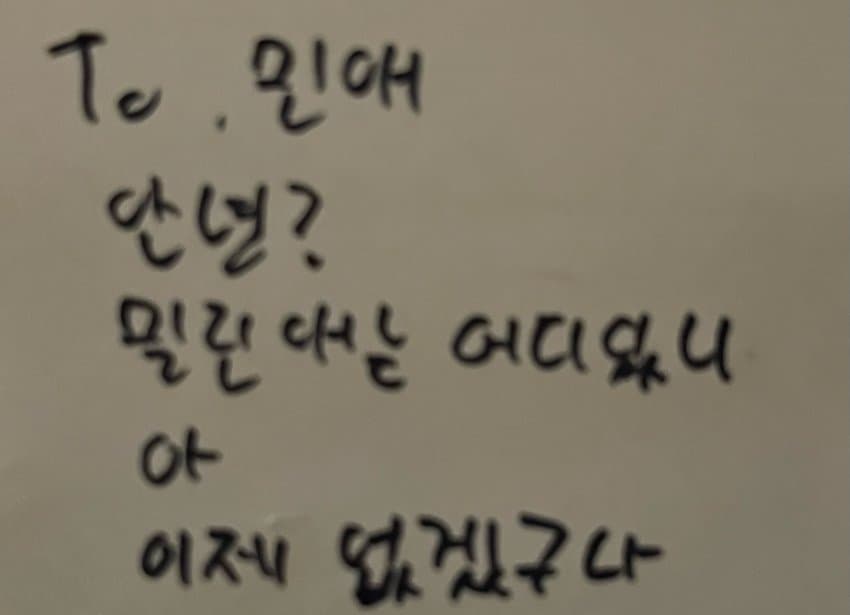 To. 민애
안녕?
밀린애는 어디있니
아
이제 없겠구나